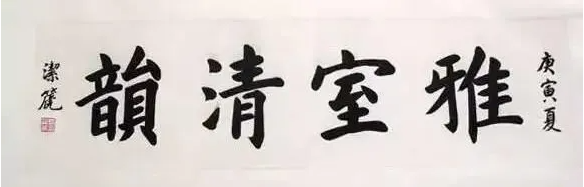 庚寅夏
雅室清韻
潔